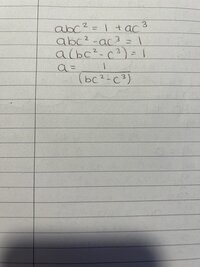 abc² = 1 + ac³
abc² - ac³ = 1
a(bc² - c³) = 1
a = 1
(bc² - c³)